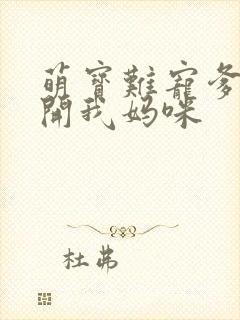 萌寶難寵爹
開我媽咪
杜弗